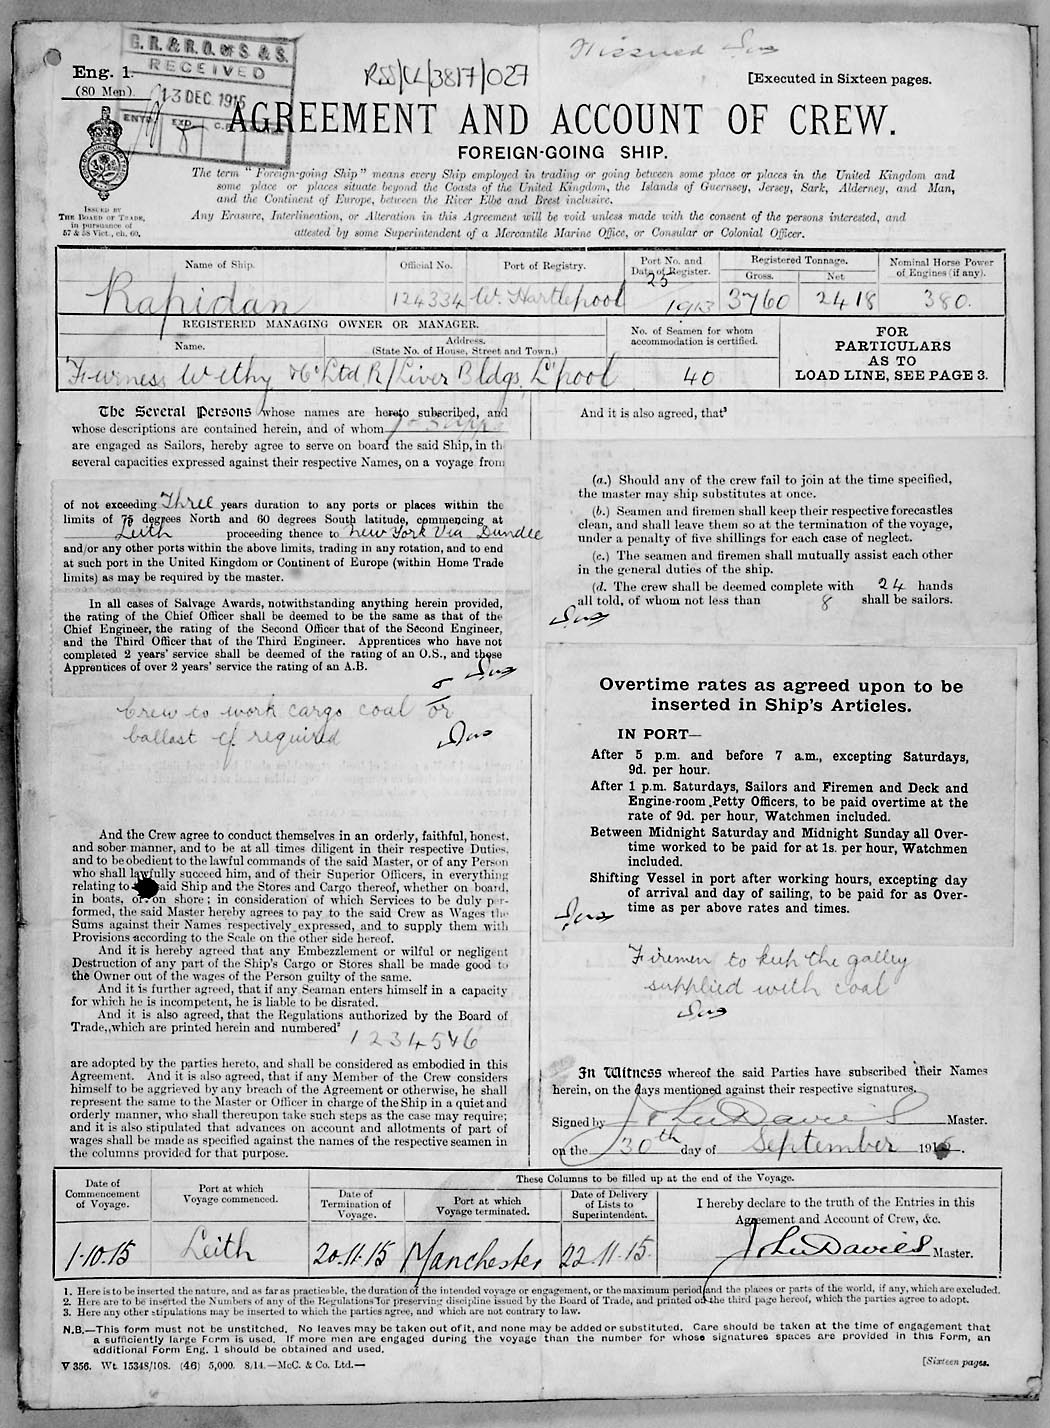 G.R.&R.O. OF S. & S.
RECEIVED
13 DEC 1915
Eng. 1.
(80 Men).
RSS/CL/3817/027
[Executed in Sixteen pages.
AGREEMENT AND ACCOUNT OF CREW.
FOREIGN-GOING SHIP.
The term "Foreign-going Ship" means every Ship employed in trading or going between some place or places in the United Kingdom and
some place or places situate beyond the Coasts of the United Kingdom, the Islands of Guernsey, Jersey, Sark, Alderney, and Man,
and the Continent of Europe, between the River Elbe and Brest inclusive.
Any Erasure, Interlineation, or Alteration in this Agreement will be void unless made with the consent of the persons interested, and
attested by some Superintendent of a Mercantile Marine Office, or Consular or Colonial Officer.
ISSUED BY
THE BOARD OF TRADE,
in pursuance of
57 & 58 Vict., ch. 60.
Name of Ship. Official No. Port of Registry. Port No. and Date of Register. Registered Tonnage. Gross. Net Nominal Horse Power of Engines (if any).
Rapidan 124334 W. Hartlepool 25 1913 3760 2418 380.
REGISTERED MANAGING OWNER OR MANAGER.
Name. Address. (State No. of House, Street and Town.)
No. of Seamen for whom accommodation is certified.
FOR
PARTICULARS
AS TO
LOAD LINE, SEE PAGE 3.
Furness Withy & Co Ltd, R/Liver Bldgs, L'pool 40
The Several Persons whose names are hereto subscribed, and
whose descriptions are contained herein, and of whom
are engaged as Sailors, hereby agree to serve on board the said Ship, in th
several capacities expressed against their respective Names, on a voyage from
of not exceeding Three years duration to any ports or places within the
limits of 75 degrees North and 60 degrees South latitude, commencing at
Leith proceeding thence to New York Via Dundee
and/or any other ports within the above limits, trading in any rotation, and to end
at such port in the United Kingdom or Continent of Europe (within Home Trade
limits) as may be required by the master.
In all cases of Salvage Awards, notwithstanding anything herein provided,
the rating of the Chief Officer shall be deemed to be the same as that of the
Chief Engineer, the rating of the Second Officer that of the Second Engineer,
and the Third Officer that of the Third Engineer. Apprentices who have not
completed 2 years' service shall be deemed of the rating of an O.S., and those
Apprentices of over 2 years' service the rating of an A.B.
Crew to work cargo coal or
ballast if required
And the Crew agree to conduct themselves in an orderly, faithful, honest,
and sober manner, and to be at all times diligent in their respective Duties,
and to be obedient to the lawful commands of the said Master, or of any Person
who shall lawfully succeed him, and of their Superior Officers, in everything
relating to said Ship and the Stores and Cargo thereof, whether on board,
in boats, or on shore; in consideration of which Services to be duly per-
formed, the said Master hereby agrees to pay to the said Crew as Wages the
Sums against their Names respectively expressed, and to supply them with
Provisions according to the Scale on the other side hereof.
And it is hereby agreed that any Embezzlement or wilful or negligent
Destruction of any part of the Ship's Cargo or Stores shall be made good to
the Owner out of the wages of the Person guilty of the same.
And it is further agreed, that if any Seaman enters himself in a capacity
for which he is incompetent, he is liable to be disrated.
And it is also agreed, that the Regulations authorized by the Board of
Trade, which are printed herein and numbered²
1 2 3 4 5 & 6
are adopted by the parties hereto, and shall be considered as embodied in this
Agreement. And it is also agreed, that if any Member of the Crew considers
himself to be aggrieved by any breach of the Agreement or otherwise, he shall
represent the same to the Master or Officer in charge of the Ship in a quiet and
orderly manner, who shall thereupon take such steps as the case may require;
and it is also stipulated that advances on account and allotments of part of
wages shall be made as specified against the names of the respective seamen in
the columns provided for that purpose.
And it is also agreed, that³
(a.) Should any of the crew fail to join at the time specified,
the master may ship substitutes at once.
(b.) Seamen and firemen shall keep their respective forecastles
clean, and shall leave them so at the termination of the voyage,
under a penalty of five shillings for each case of neglect.
(c.) The seamen and firemen shall mutually assist each other
in the general duties of the ship.
(d. The crew shall be deemed complete with 24 hands
all told, of whom not less than 8 shall be sailors.
Overtime rates as agreed upon to be
inserted in Ship's Articles.
IN PORT—
After 5 p.m. and before 7 a.m., excepting Saturdays,
9d. per hour.
After 1 p.m. Saturdays, Sailors and Firemen and Deck and
Engine-room Petty Officers, to be paid overtime at the
rate of 9d. per hour, Watchmen included.
Between Midnight Saturday and Midnight Sunday all Over-
time worked to be paid for at 1s. per hour, Watchmen
included.
Shifting Vessel in port after working hours, excepting day
of arrival and day of sailing, to be paid for as Over-
time as per above rates and times.
Firemen to keep the galley
supplied with coal
In Witness whereof the said Parties have subscribed their Names
herein, on the days mentioned against their respective signatures.
Signed by John Davies Master.
on the 30th day of September 191
These Columns to be filled up at the end of the Voyage.
Date of Commencement of Voyage. Port at which Voyage commenced. Date of Termination of Voyage. Port at which Voyage terminated. Date of Delivery of Lists to Superintendent.
I hereby declare to the truth of the Entries in this
Agreement and Account of Crew, &c.
1.10.15 Leith 20.11.15 Manchester 22.11.15 John Davies Master.
1. Here is to be inserted the nature, and as far as practicable, the duration of the intended voyage or engagement, or the maximum period and the places or parts of the world, if any, which are excluded.
2. Here are to be inserted the Numbers of any of the Regulations for preserving discipline issued by the Board of Trade, and printed on the third page hereof, which the parties agree to adopt.
3. Here any other stipulations may be inserted to which the parties agree, and which are not contrary to law.
N.B.—This form must not be unstitched. No leaves may be taken out of it, and none may be added or substituted. Care should be taken at the time of engagement that
a sufficiently large Form is used. If more men are engaged during the voyage than the number for whose signatures spaces are provided in this Form, an
additional Form Eng. 1 should be obtained and used.
V 356. Wt. 15348/108. (46) 5,000. 8/14.—McC. & Co. Ltd.—
[Sixteen pages.